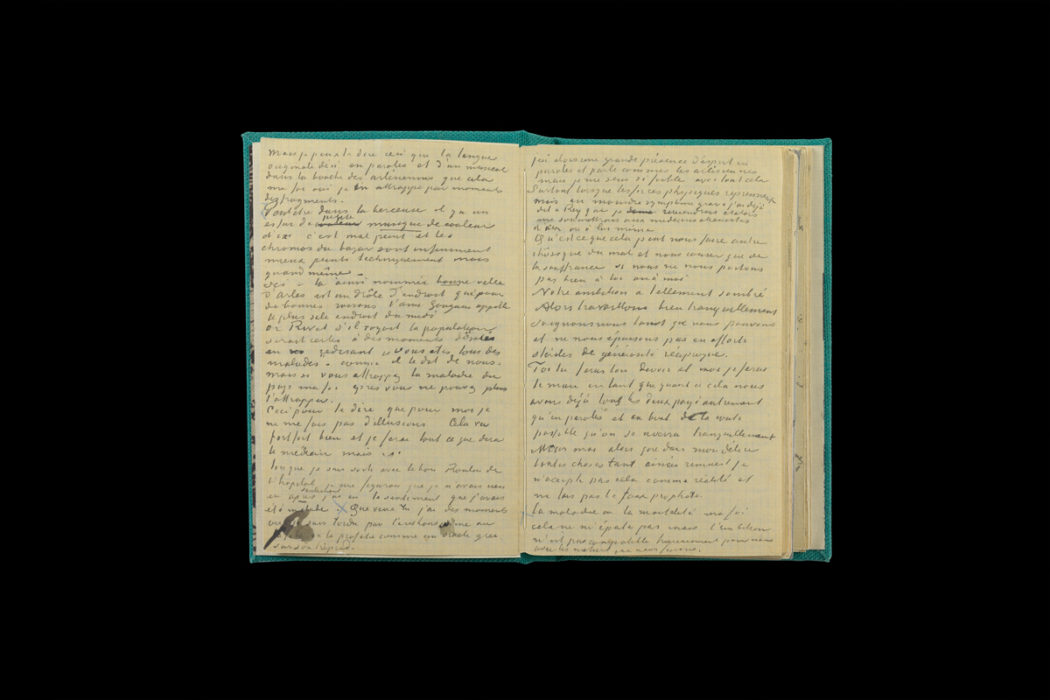 Mais je peux te dire ceci que la langue
originale d'ici en paroles et d'un musical
dans la bouche des arlesiennes que cela
ma foi oui je en attrappe par moments
des fragments.
Peutêtre dans la berceuse il y a un
essai de petite musique de couleur
d'ici c'est mal peint et les
chromos du bazar sont infiniment
mieux peints techniquement mais
quand même.
Ici – la ainsi nommée bonne ville
d'Arles est un drôle d'endroit que pour
de bonnes raisons l'ami Gauguin appelle
le plus sale endroit du midi
or Rivet s'il voyait la population
serait certes à des moments désolé
en redisant vous etes tous des
malades. comme il le dit de nous.
mais si vous attrappez la maladie du
pays ma foi après vous ne pouvez plus
l'attrapper.
Ceci pour te dire que pour moi je
ne me fais pas d'illusions Cela va
fort fort bien et je ferai tout ce que dira
le médecin mais
Lorsque je suis sorti avec le bon Roulin de
l'hôpital je me figurais que je n'avais rien
eu après seulement j'ai eu le sentiment que j'avais
été malade Que veux tu j'ai des moments
où je suis tordu par l'enthousiasme ou
la folie ou la prophétie comme un oracle grec
sur son trépied.
j'ai alors une grande présence d'esprit en
paroles et parle comme les arlesiennes
mais je me sens si faible avec tout cela
Surtout lorsque les forces physiques reprennent
mais au moindre symptome grave j'ai déjà
dit à Rey que je reviendrais et alors
me soumettrais aux medecins alienistes
d'Aix ou à lui même
Qu'est ce que cela peut nous faire autre
chose que du mal et nous causer que de
la souffrance si nous ne nous portons
pas bien à toi ou à moi.
Notre ambition a tellement sombré
Alors travaillons bien tranquillement
soignons nous tant que nous pouvons
et ne nous épuisons pas en efforts
stériles de générosité réciproque.
Toi tu feras ton devoir et moi je ferai
le mien en tant que quant à cela nous
avons déjà tous les deux payé autrement
qu'en paroles et au bout de la route
possible qu'on se reverra tranquillement
Mais moi alors que dans mon délire
toutes choses tant aimées remuent je
n'accepte pas cela comme réalité et
ne fais pas le faux prophète.
La maladie ou la mortalité ma foi
cela ne m'épate pas mais l'ambition
n'est pas compatible heureusement pour nous
avec les métiers que nous faisons.